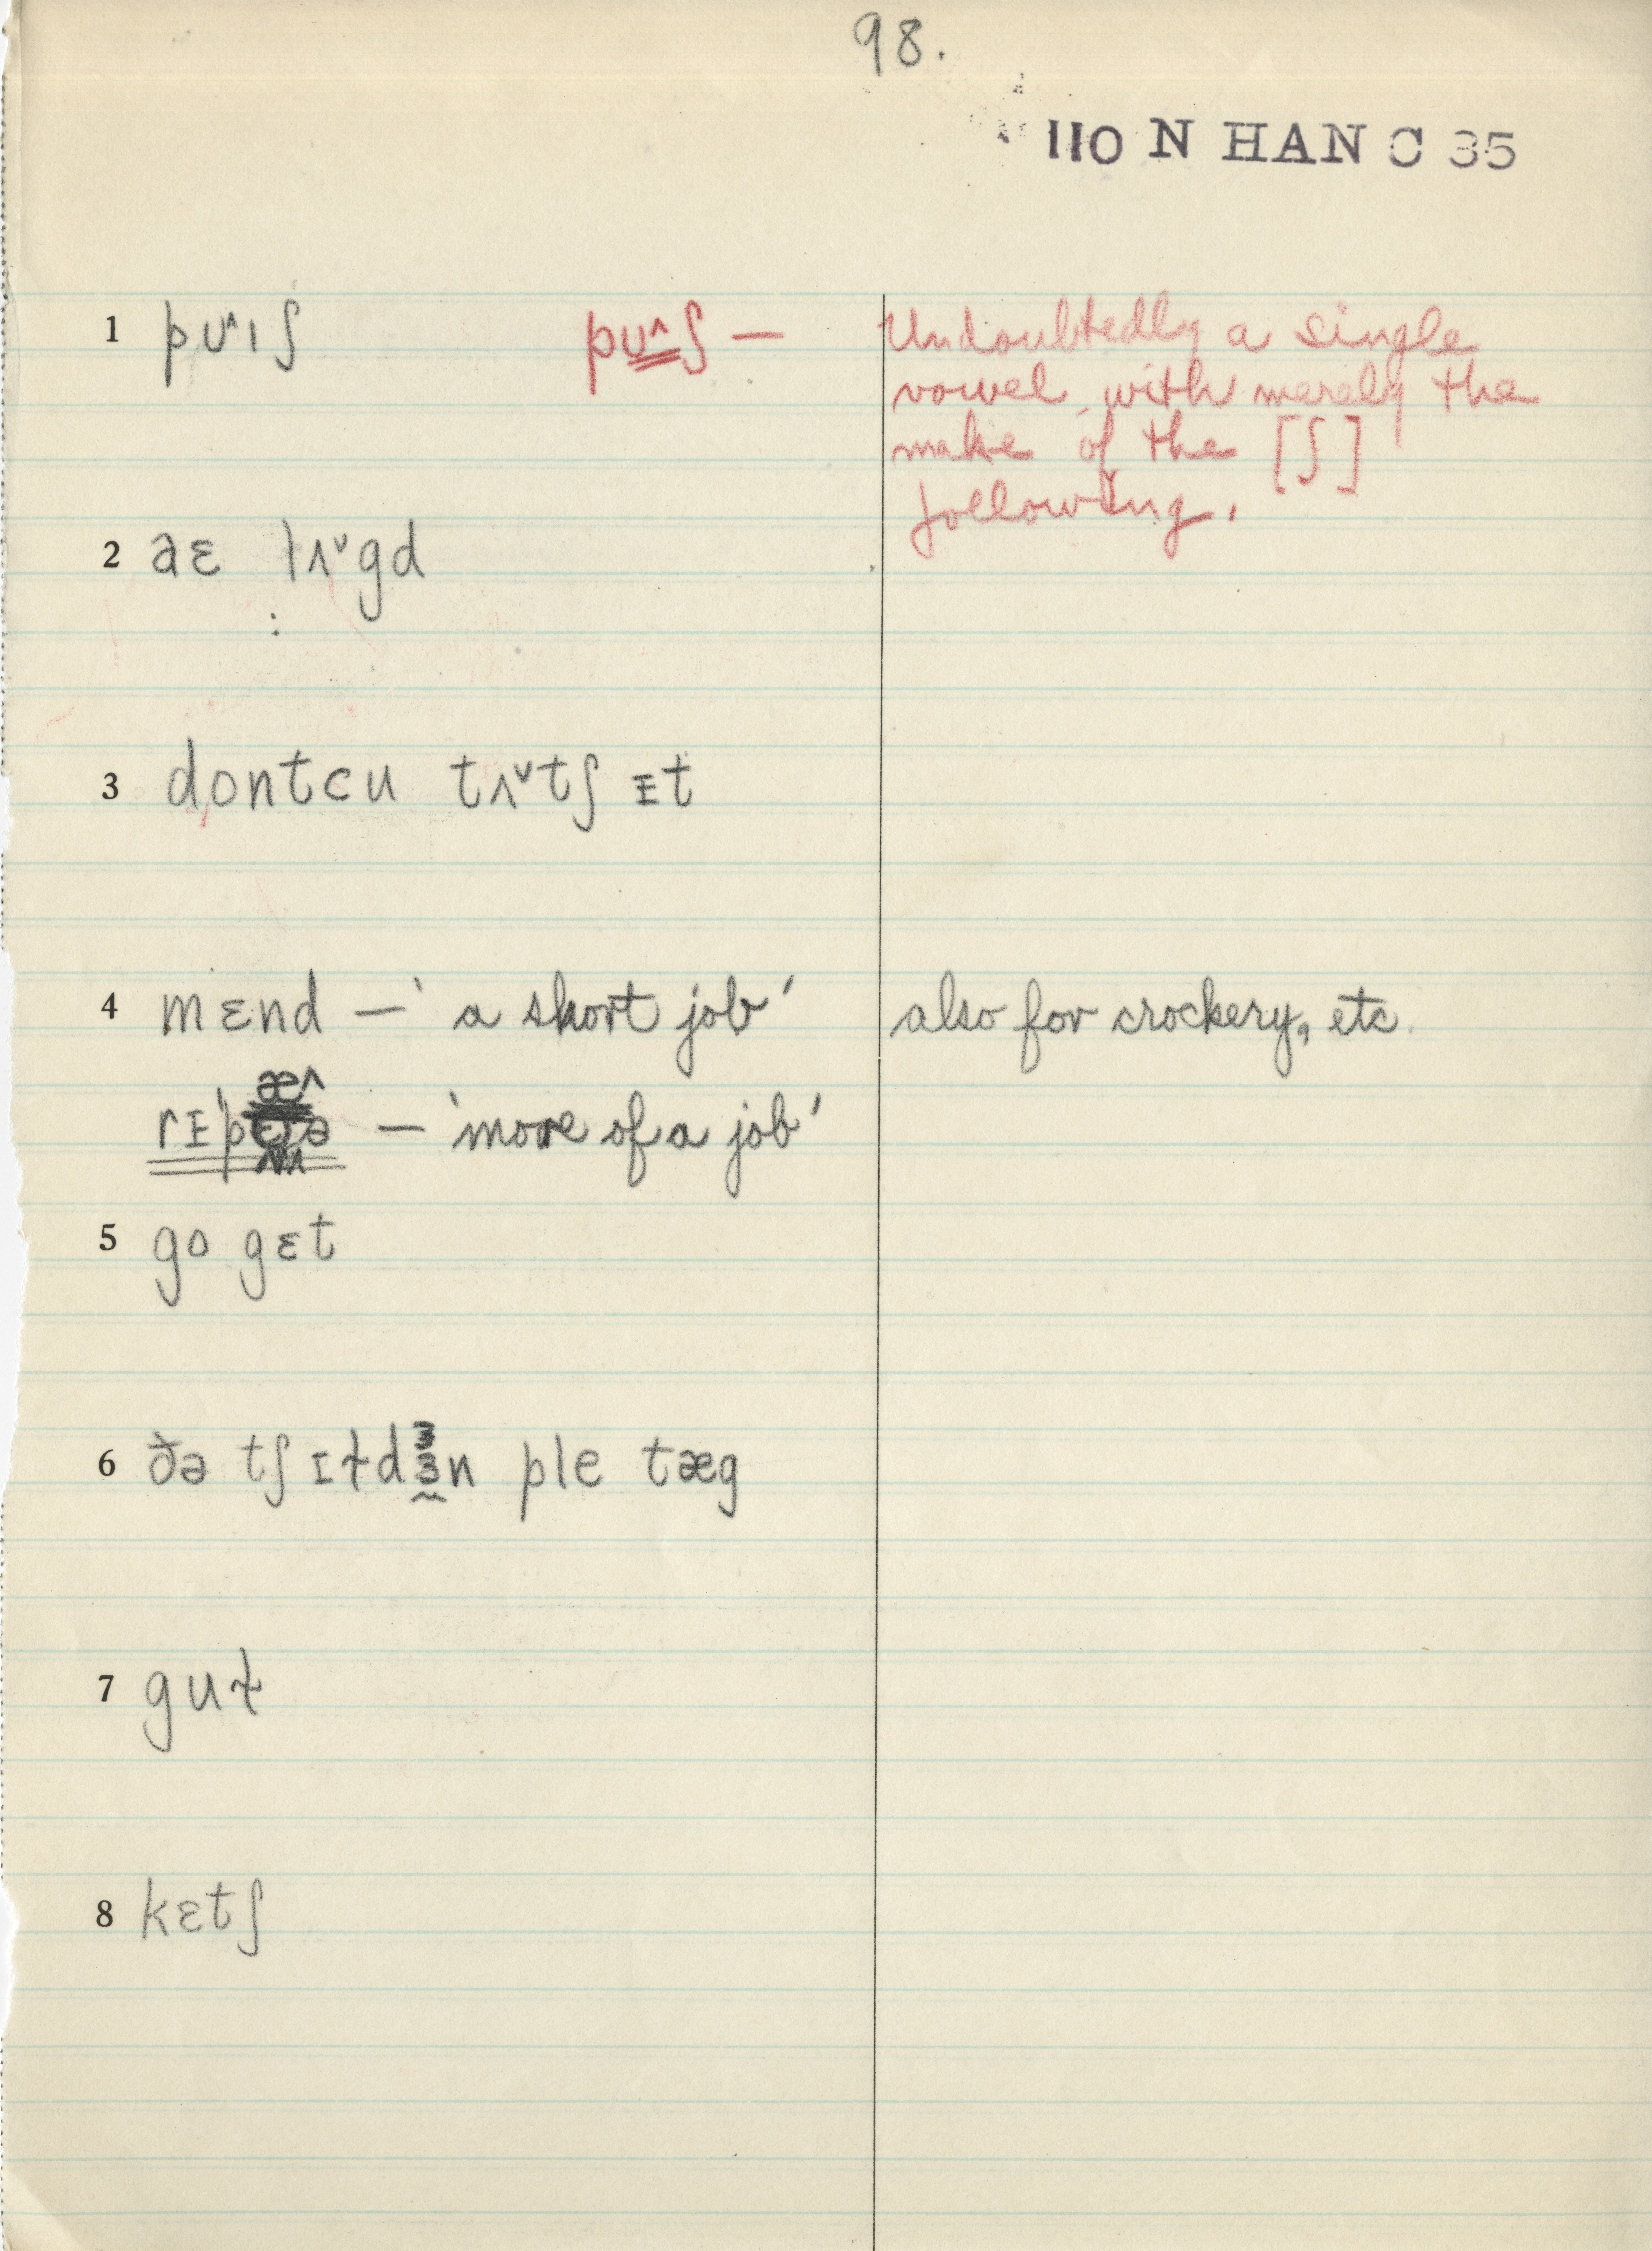 98.
110 N HAN C 35
1 pʊ˄ıʃ pʊ˄ʃ — Undoubtedly a single
vowel with merely the
make of the [ʃ]
following.
2 aɛ lʌ˅gd
3 dontcu tʌ˅tʃ ɪt
4 mɛnd — 'a short job' also for crockery, etc.
— 'more of a job'
5 go gɛt
6 ðə tʃɪɫdɜn ple tæg
7 guɫ
8 kɛtʃ